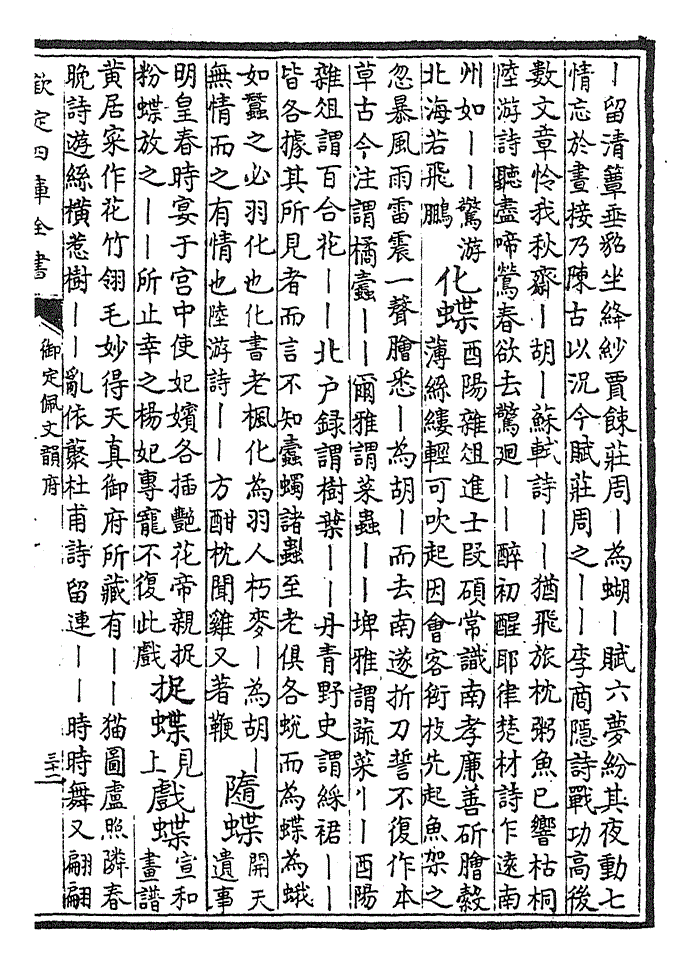 ｜留清簟垂貂坐絳紗賈餗莊周｜為蝴｜賦六夢紛其夜動七
情忘於晝接乃陳古以況今賦莊周之｜｜李商隱詩戰功高後
數文章憐我秋齋｜胡｜蘇軾詩｜｜猶飛旅枕粥魚已響枯桐
陸游詩聽盡啼鶯春欲去驚廻｜｜醉初醒耶律楚材詩乍遠南
州如｜｜驚游
北海若飛鵬
化蝶
酉陽雜俎進士段碩常識南孝廉善斫膾縠
薄絲縷輕可吹起因會客衒技先起魚架之
忽暴風雨雷震一聲膾悉｜為胡｜而去南遂折刀誓不復作本
草古今注謂橘蠹｜｜爾雅謂菜蟲｜｜埤雅謂蔬菜｜｜酉陽
雜俎謂百合花｜｜北户録謂樹葉｜｜丹青野史謂綵裙｜｜
皆各據其所見者而言不知蠹蠋諸蟲至老俱各蛻而為蝶為蛾
如蠶之必羽化也化書老楓化為羽人朽麥｜為胡｜
無情而之有情也陸游詩｜｜方酣枕聞雞又著鞭
隨蝶
開天
遺事
明皇春時宴于宫中使妃嬪各插艷花帝親捉
粉蝶放之｜｜所止幸之楊妃專寵不復此戲
捉蝶
見
上
戲蝶
宣和
畫譜
黄居寀作花竹翎毛妙得天真御府所藏有｜｜猫圖盧照隣春
晚詩遊絲橫惹樹｜｜亂依藂杜甫詩留連｜｜時時舞又翩翩
欽定四庫全書
御定佩文韻府
三十二